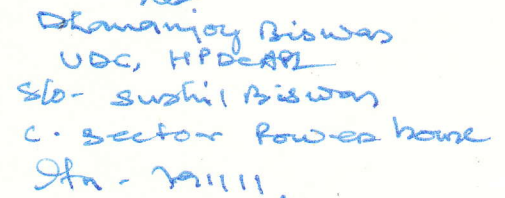 Dhananjoy Biswas
UDC, HPDCAPL
S/o- Sushil Biswas
C. Sector Power house
Itn - 791111.